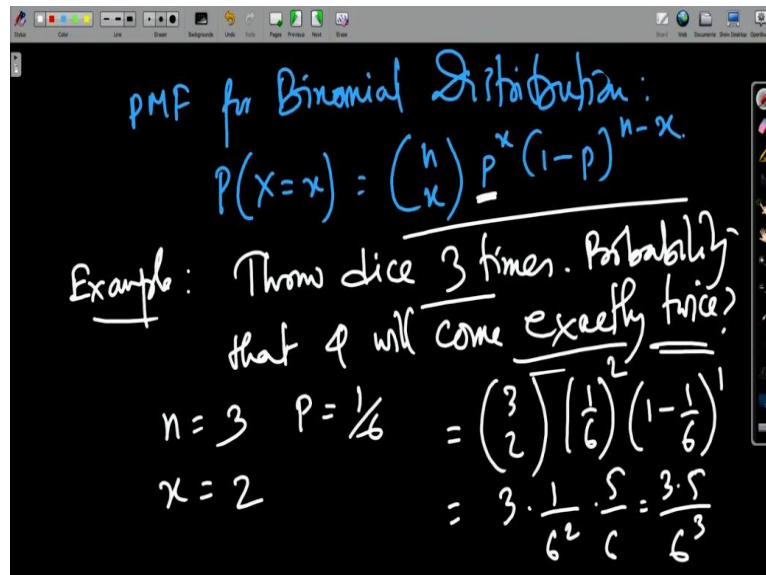 Stylus Color Line Eraser Backgrounds Undo Redo Pages Previous Next Erase Board Web Documents Show Desktop
PMF for Binomial Distribution:
P(X=x) = (n x) p^x (1-p)^{n-x}.
Example: Throw dice 3 times. Probability
that 4 will come exactly twice?
n=3 P=1/6 = (3 2) (1/6)^2 (1-1/6)^1
x=2 = 3·1/6^2·5/6=3·5/6^3